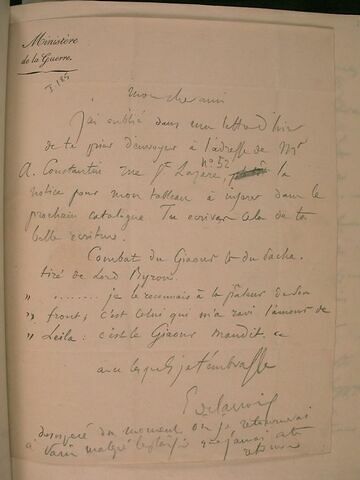 Ministère
de la Guerre.
I. 185
Mon cher ami
J'ai oublié dans ma lettre d'hier
de te prier d'envoyer à l'adresse de Mr
A. Constantin rue St Lazare n° 52 la
notice pour mon tableau à insérer dans le
prochain catalogue. Tu écriras cela de ta
belle écriture.
Combat du Giaour & du Pacha.
tiré de Lord Byron.
" ........ je le reconnais à la pâleur de son
" front; c'est celui qui m'a ravi l'amour de
" Leila: c'est le Giaour maudit.
avec lesquels je t'embrasse
E Delacroix
désespéré du moment où je retournerai
à Paris malgré le plaisir